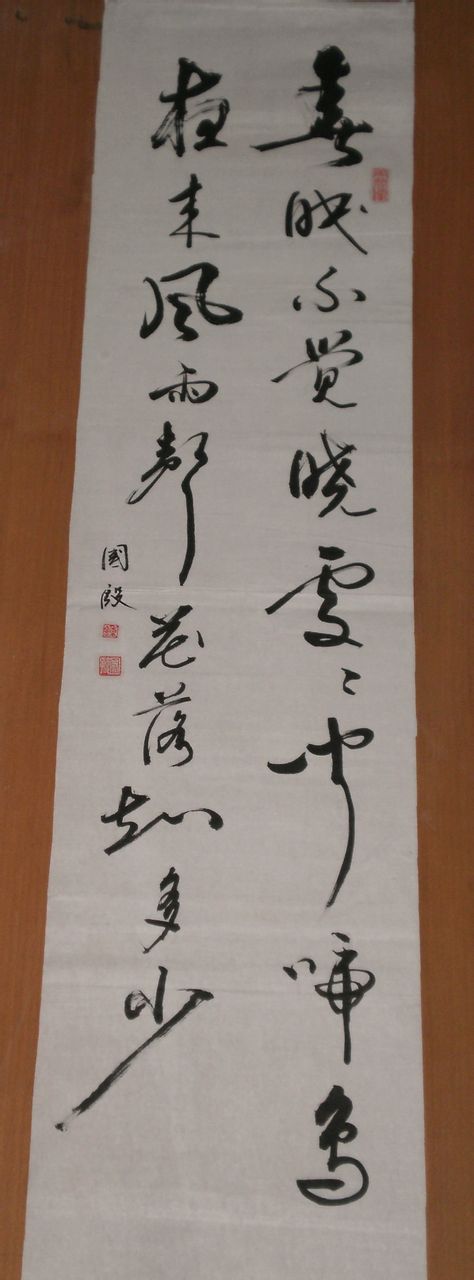 春眠不觉晓处〻闻啼鸟
夜来风雨声花落知多少
國殷